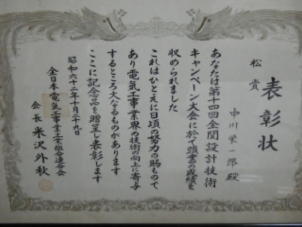 表彰状
松賞
中川栄一郎殿
あなたは第十四回全関設計技術
キャンペーン大会に於て頭書の成績を
収められました
これはひとえに日頃の努力の賜もので
あり電気工事業界の技術の向上に寄与
するところ大なるものがあります
ここに記念品を贈呈し表彰します
昭和六十二年十月二十九日
全日本電気工事業工業組合連合会
会長 米沢外秋